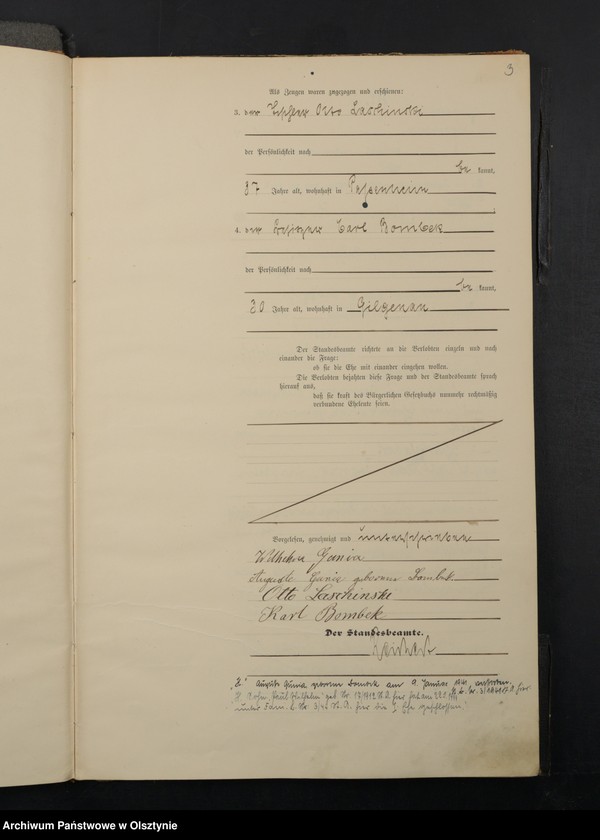 3
Als Zeugen waren zugezogen und erschienen:
3. der Otto Laschinski
der Persönlichkeit nach
be kannt,
37 Jahre alt, wohnhaft in Passenheim
4. der Besitzer Carl Bombek
der Persönlichkeit nach
be kannt,
30 Jahre alt, wohnhaft in Gilgenau
Der Standesbeamte richtete an die Verlobten einzeln und nach
einander die Frage:
ob sie die Ehe mit einander eingehen wollen.
Die Verlobten bejahten diese Frage und der Standesbeamte sprach
hierauf aus,
daß sie kraft des Bürgerlichen Gesetzbuchs nunmehr rechtmäßig
verbundene Eheleute seien.
Vorgelesen, genehmigt und unterschrieben
Wilhelm Gania
Auguste Gania geborene Dombek
Otto Laschinski
Karl Bombek
Der Standesbeamte.
geborene Dombek am 9. Januar
Archiwum Państwowe w Olsztynie